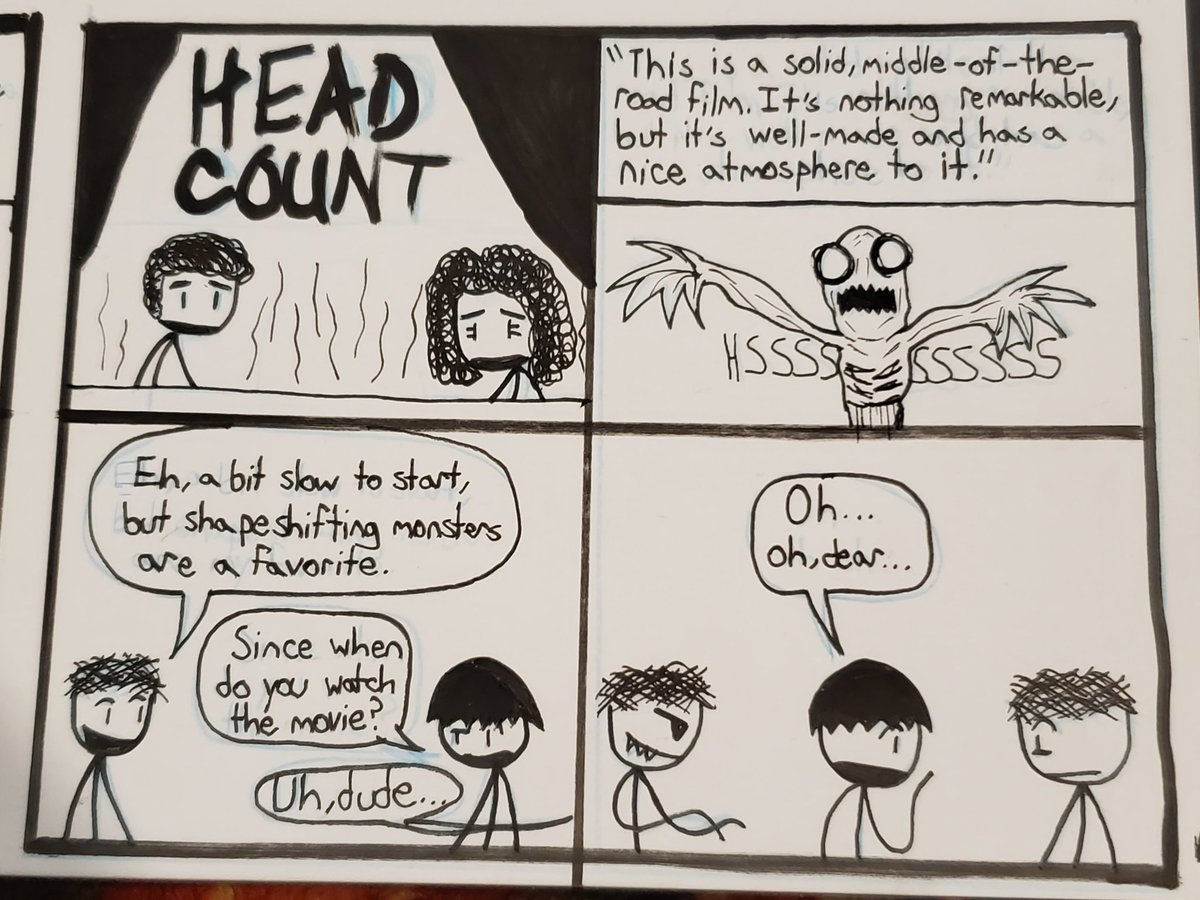 HEAD
COUNT
"This is a solid, middle-of-the-
road film. It's nothing remarkable,
but it's well-made and has a
nice atmosphere to it."
HSSSS SSSSSS
Eh, a bit slow to start,
but shapeshifting monsters
are a favorite.
Since when
do you watch
the movie?
Uh, dude...
Oh...
oh, dear...